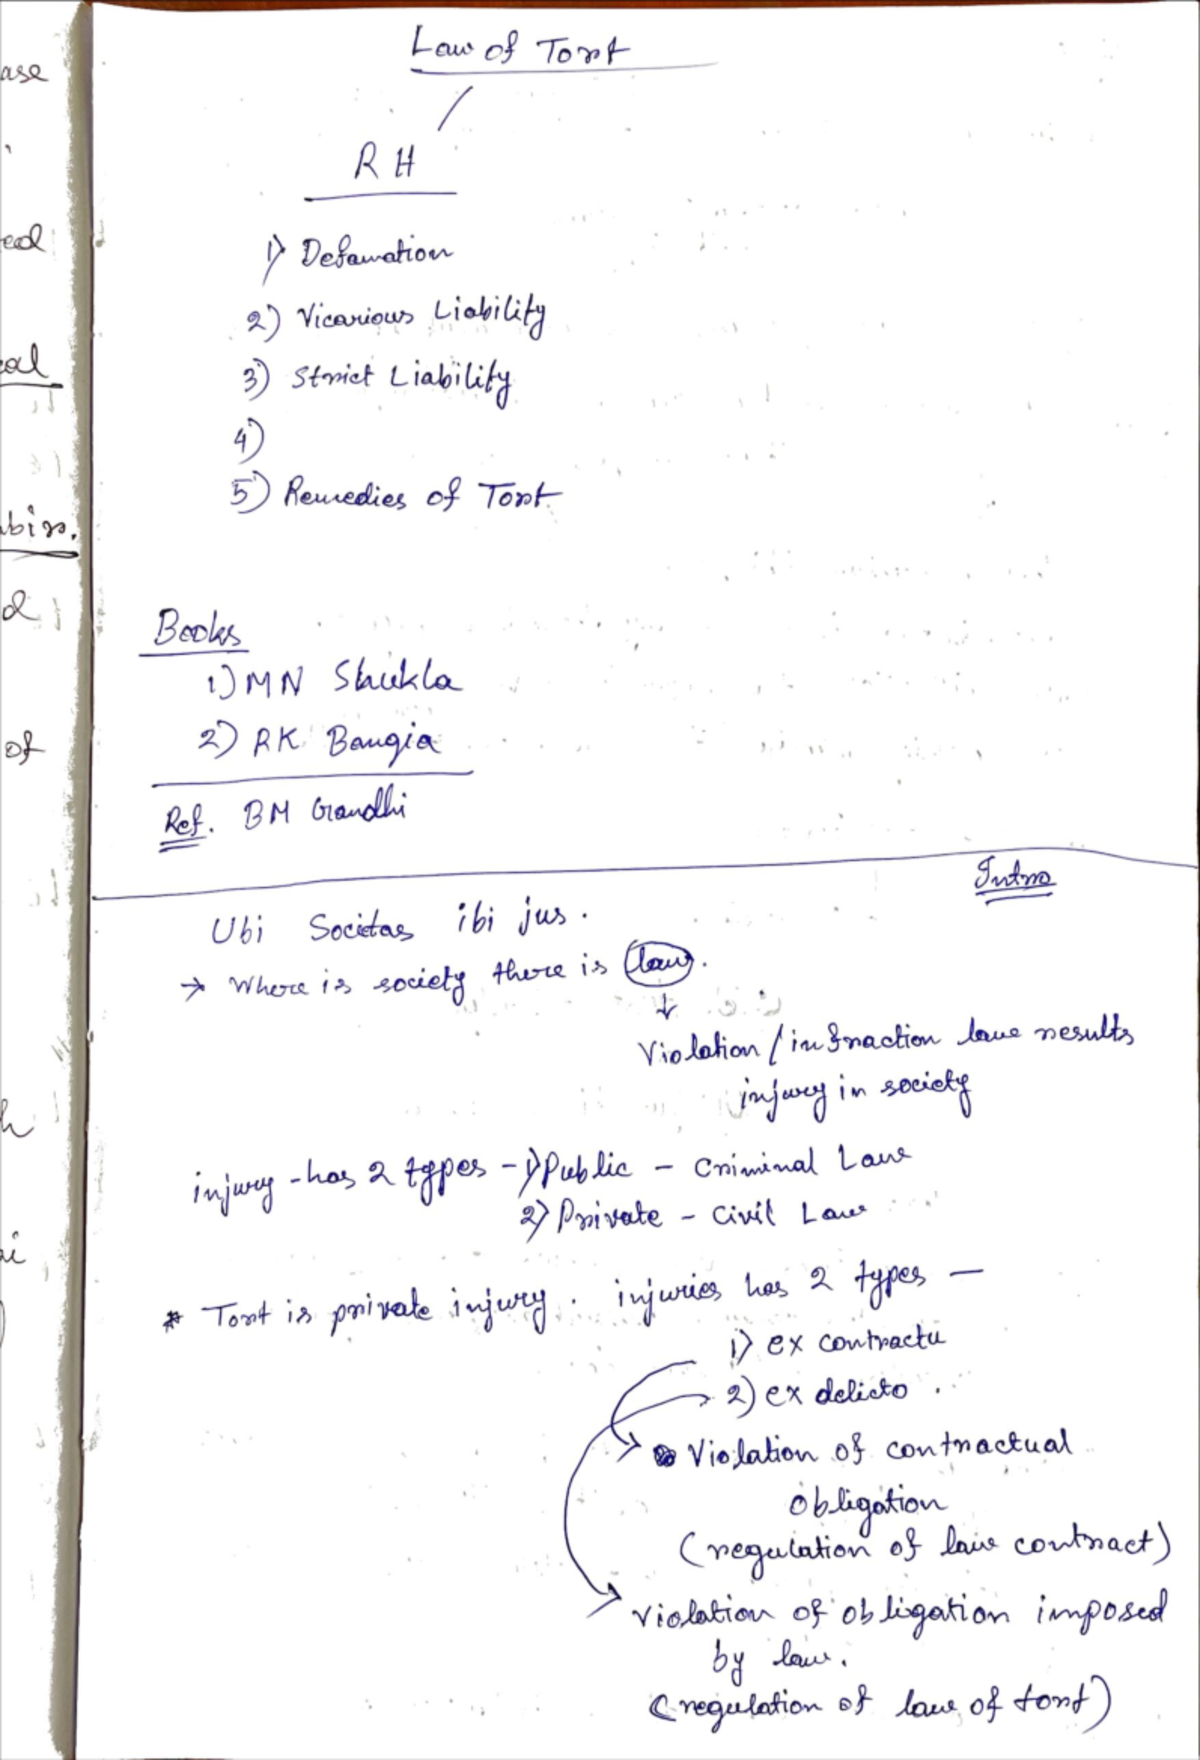 Law of Tort
R H
1) Defamation
2) Vicarious Liability
3) Strict Liability
4)
5) Remedies of Tort
Books
1) MN Shukla
2) RK Bangia
Ref. BM Gandhi
Intro
Ubi Socitas ibi jus.
→ Where is society there is law.
↓
Violation / infraction law results
injury in society
injury - has 2 types - 1) Public - Criminal Law
2) Private - Civil Law
* Tort is private injury. injuries has 2 types —
1) ex contractu
2) ex delicto.
Violation of contractual
obligation
(regulation of law contract)
violation of obligation imposed
by law.
(regulation of law of tort)
ase
eol
cal
d
of
h